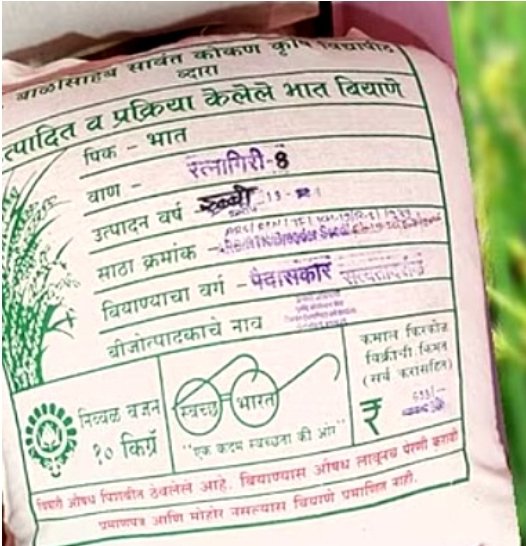 बाळासाहेब सावंत कोकण कृषि विद्यापीठ
व्दारा
त्पादित व प्रक्रिया केलेले भात बियाणे
पिक - भात
वाण - रत्नागिरी-8
उत्पादन वर्ष - रब्बी 19-
साठा क्रमांक -
बियाण्याचा वर्ग - पैदासकार सत्यतादर्शक
बीजोत्पादकाचे नाव
निव्वळ वजन
१० किग्रॅ
स्वच्छ भारत
"एक कदम स्वच्छता की ओर"
कमाल किरकोळ
विक्रीची किंमत
(सर्व करांसहित)
₹
विषारी औषध पिशवीत ठेवलेले आहे. बियाण्यास औषध लावूनच पेरणी करावी
प्रमाणपत्र आणि मोहोर नसल्यास बियाणे प्रमाणित नाही.